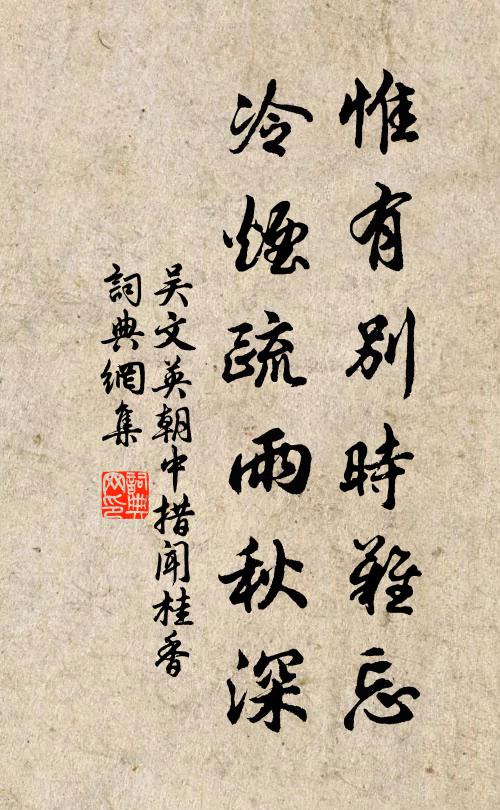 惟有别時難忘
冷煙疏雨秋深
吴文英朝中措闻桂香
詞典網集
詞典网印